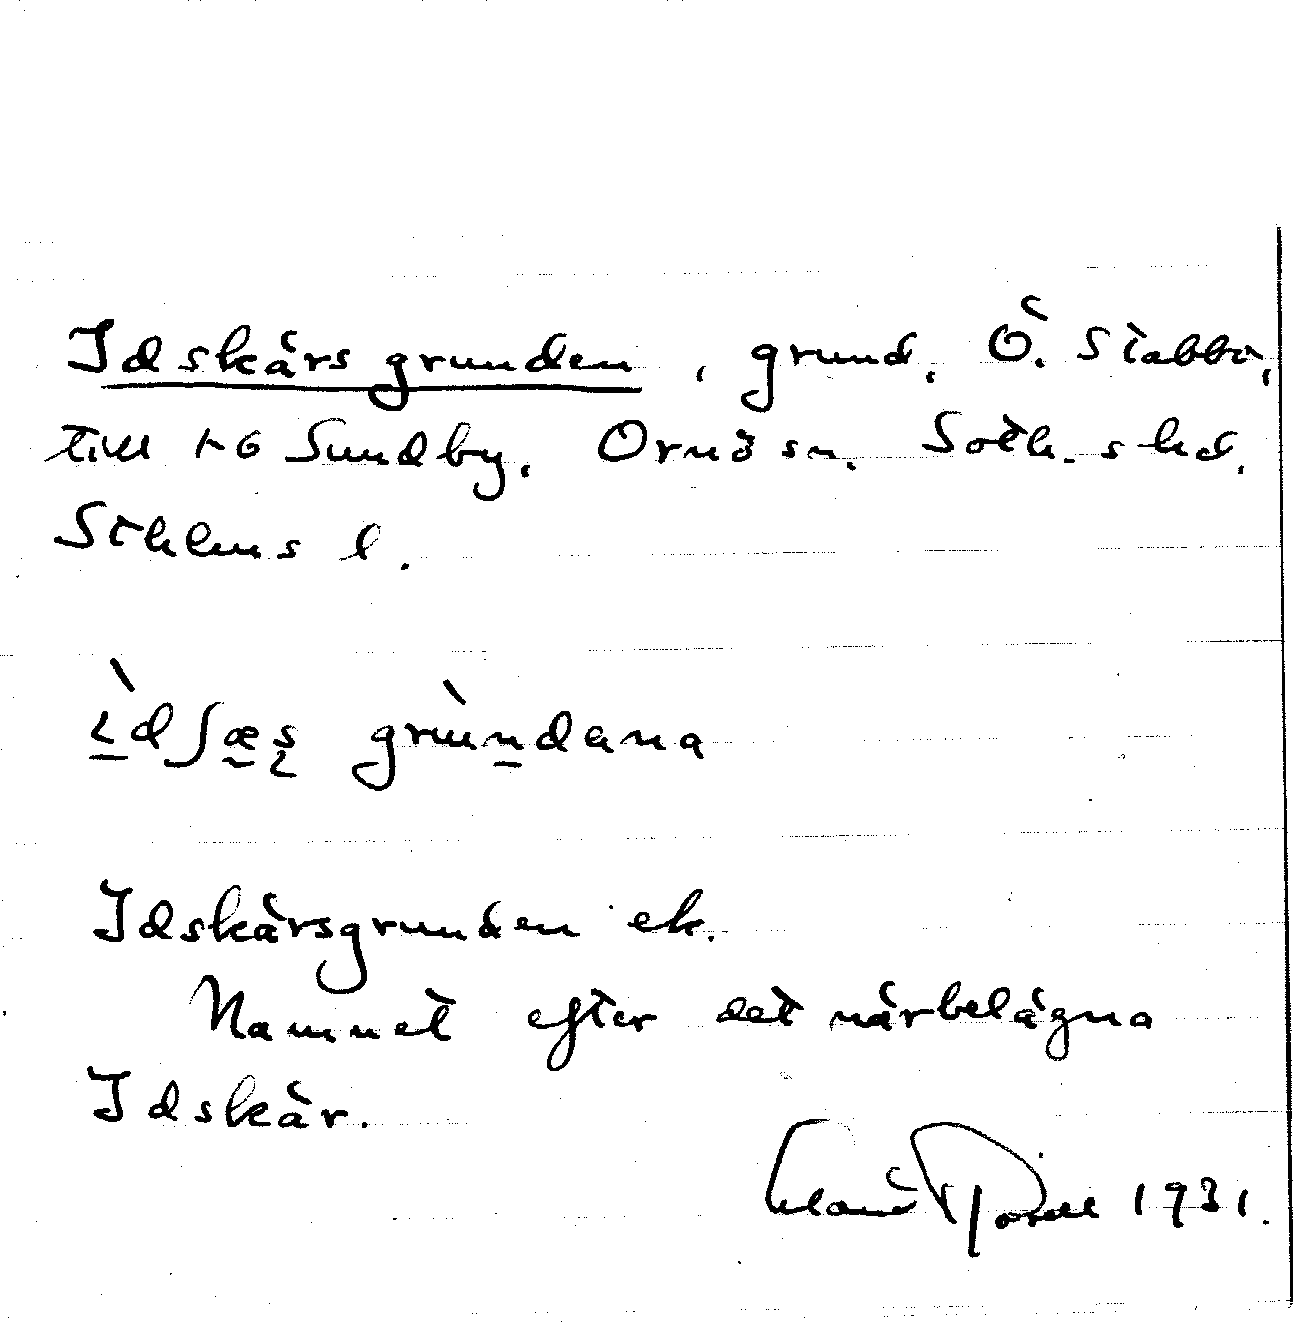 Idskärsgrunden, grund, Ö. Stabbo,
till 1-6 Sundby, Ornö sn. Soth.s hd,
Sthlms l.
ìdʃæʂ grùndana
Idskärsgrunden ek.
Namnet efter det närbelägna
Idskär.
1931.